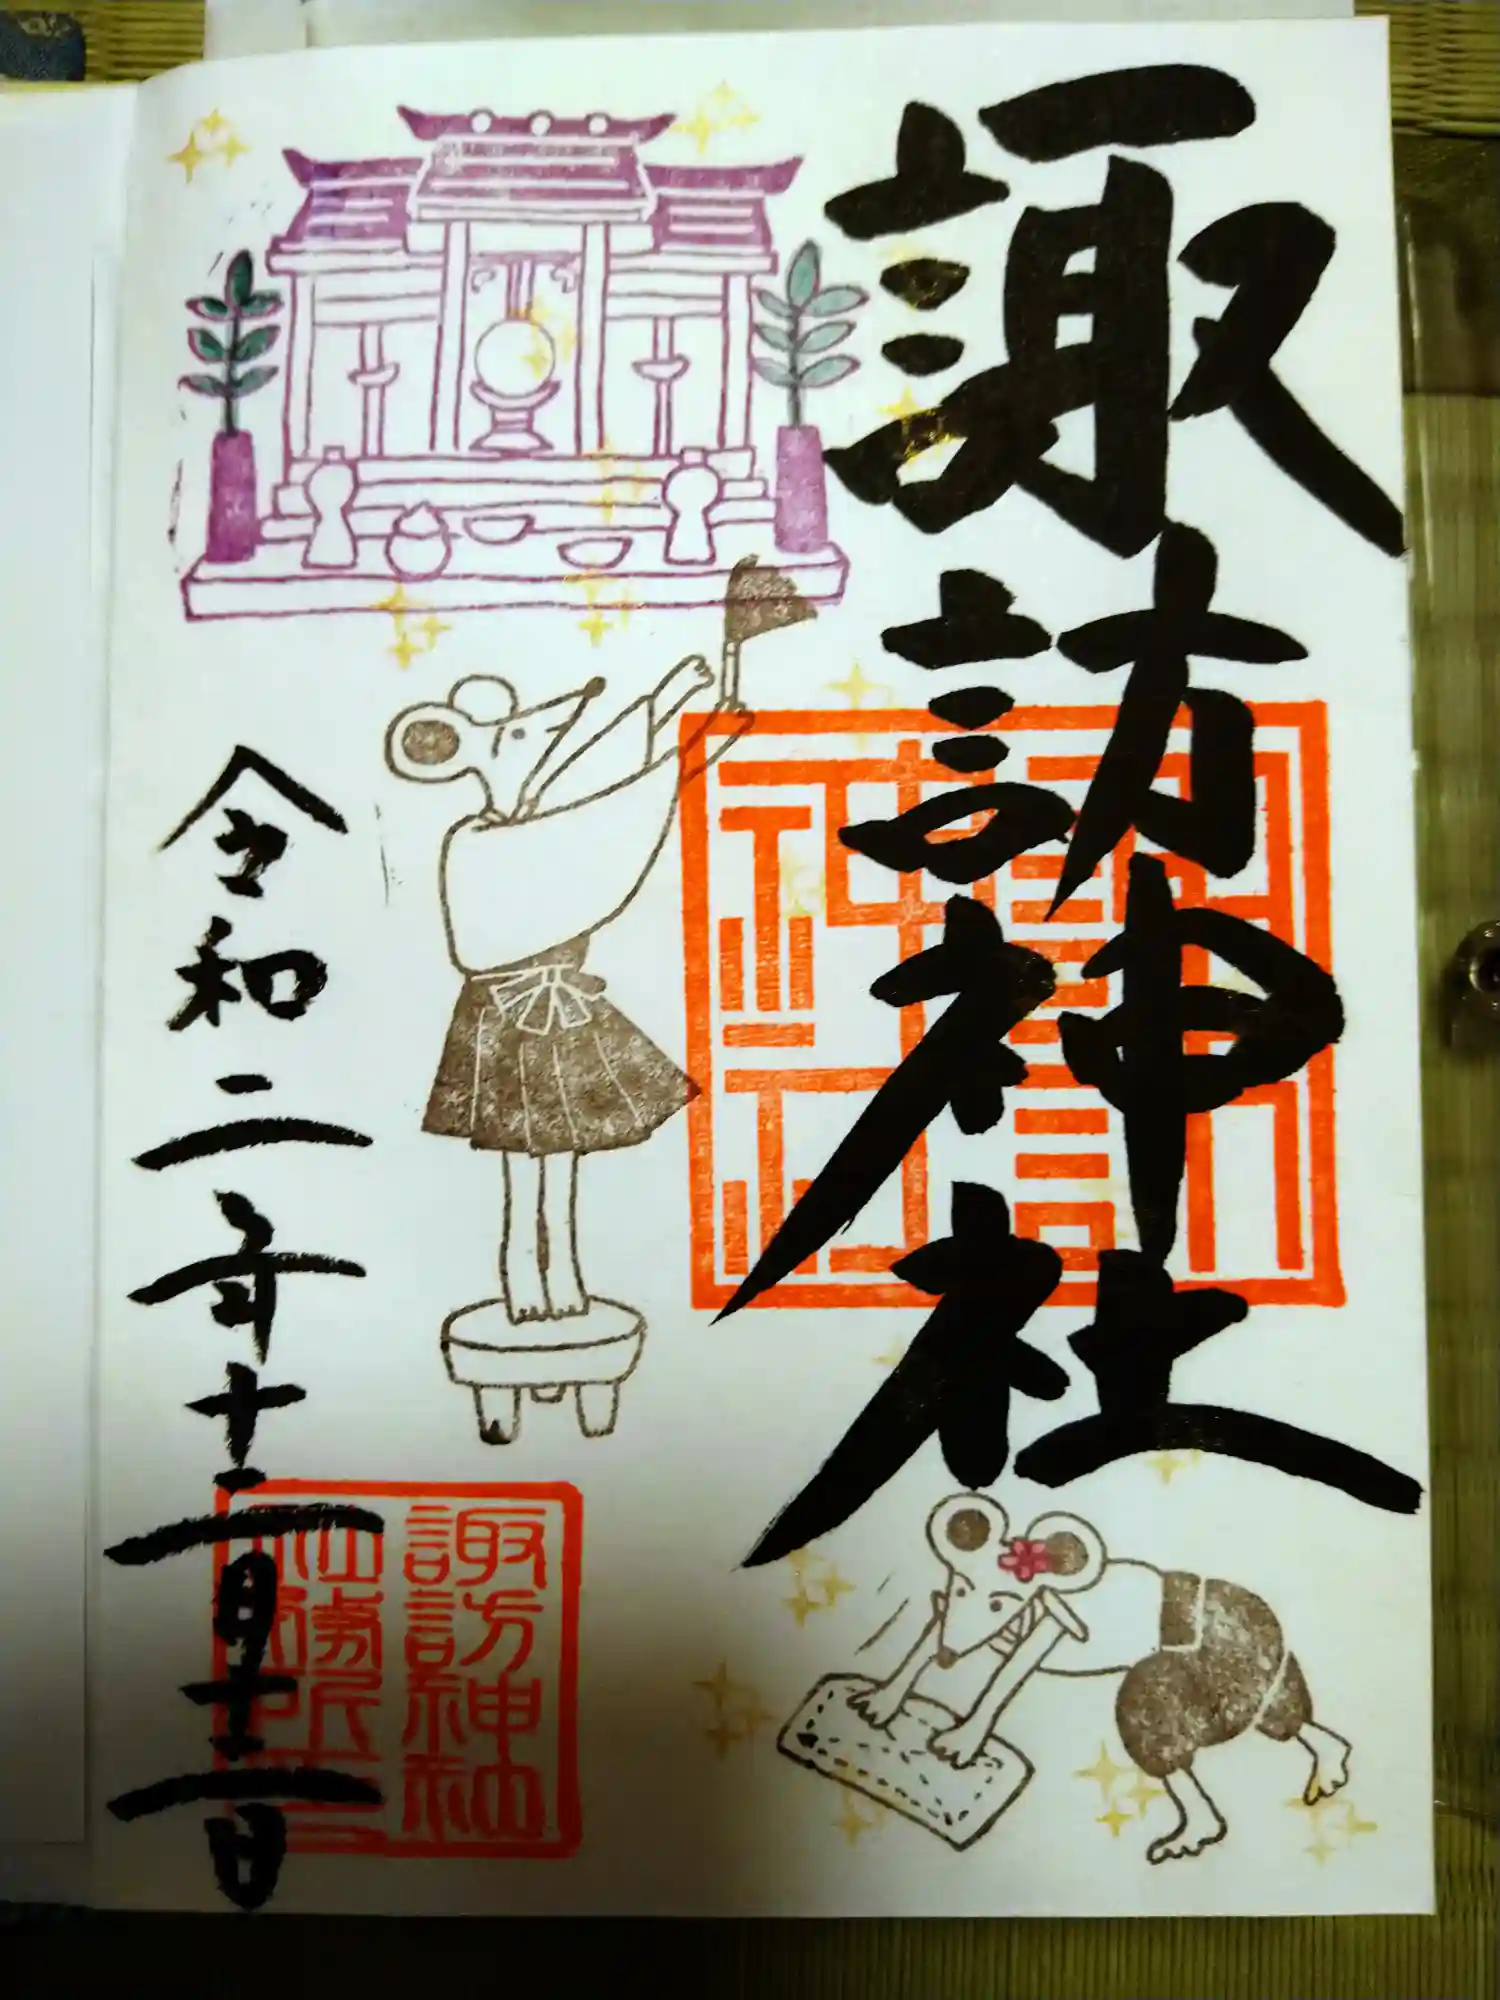 諏訪神社
諏訪
神社
令和二年十二月十二日
諏訪神社
社務所